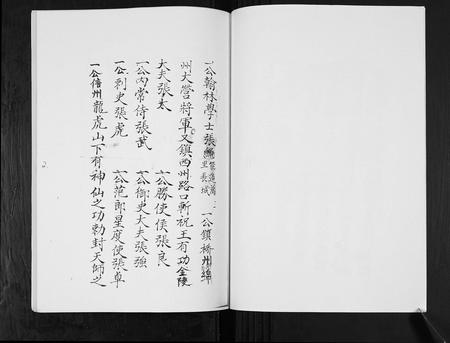 一公翰林學士張 一公鎮橋州
州大營將軍又鎮西州路口斬祝王有功金陵
大夫張太 一公勝使侯張良
一公內常侍張武 一公御史大夫張強
一公刺史張虎 一公范郎星度使張章
一公信州龍虎山下有神仙之功勅封天師之
2